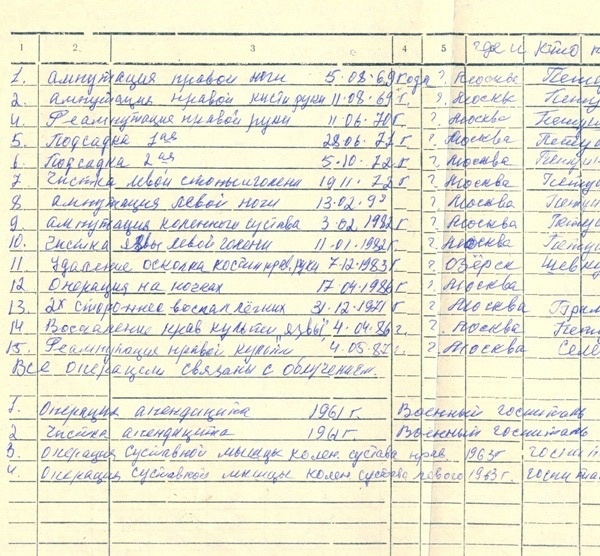 1 2. 3 4 5 где и кто
1. Ампутация правой ноги 5.08.69 года г. Москва Петуш
2. Ампутация правой кисти руки 11.08.69 г. г. Москва Петуш
4. Реампутация правой руки 11 06.70 г г. Москва Петуш
5. Подсадка 1ая 28.06.71 г г. Москва Петуш
6. Подсадка 2ая 5.10.72 г г. Москва Петуш
7 Чистка левой стопы и голени 19 11.72 г г. Москва Петуш
8 Ампутация левой ноги 13.02. г. Москва Петуш
9 Ампутация коленного сустава 3.02.1982 г г. Москва Петуш
10. Чистка язвы левой голени 11.01.1982 г. г. Москва Петуш
11. Удаление осколка кости прав. руки 7.12.1983 г г. Озёрск Шевку
12 Операция на почках 17 04.1986 г. Москва
13. 2х стороннее воспал лёгких 31.12.1971 г г. Москва Грим
14 Воспаление прав культи "язвы" 4.04.86 г. г. Москва Пет
15. Реампутация правой культи 4.05.87 г. г. Москва Селе
Все операции связаны с облучением.
1. Операция апендицита 1961 г. Военный госпиталь
2 Чистка апендицита 1961 г. Военный госпиталь
3. Операция суставной мышцы колен. сустава прав 1963 г госпит
4. Операция суставной мышцы колен сустава левого 1963 г. госпита